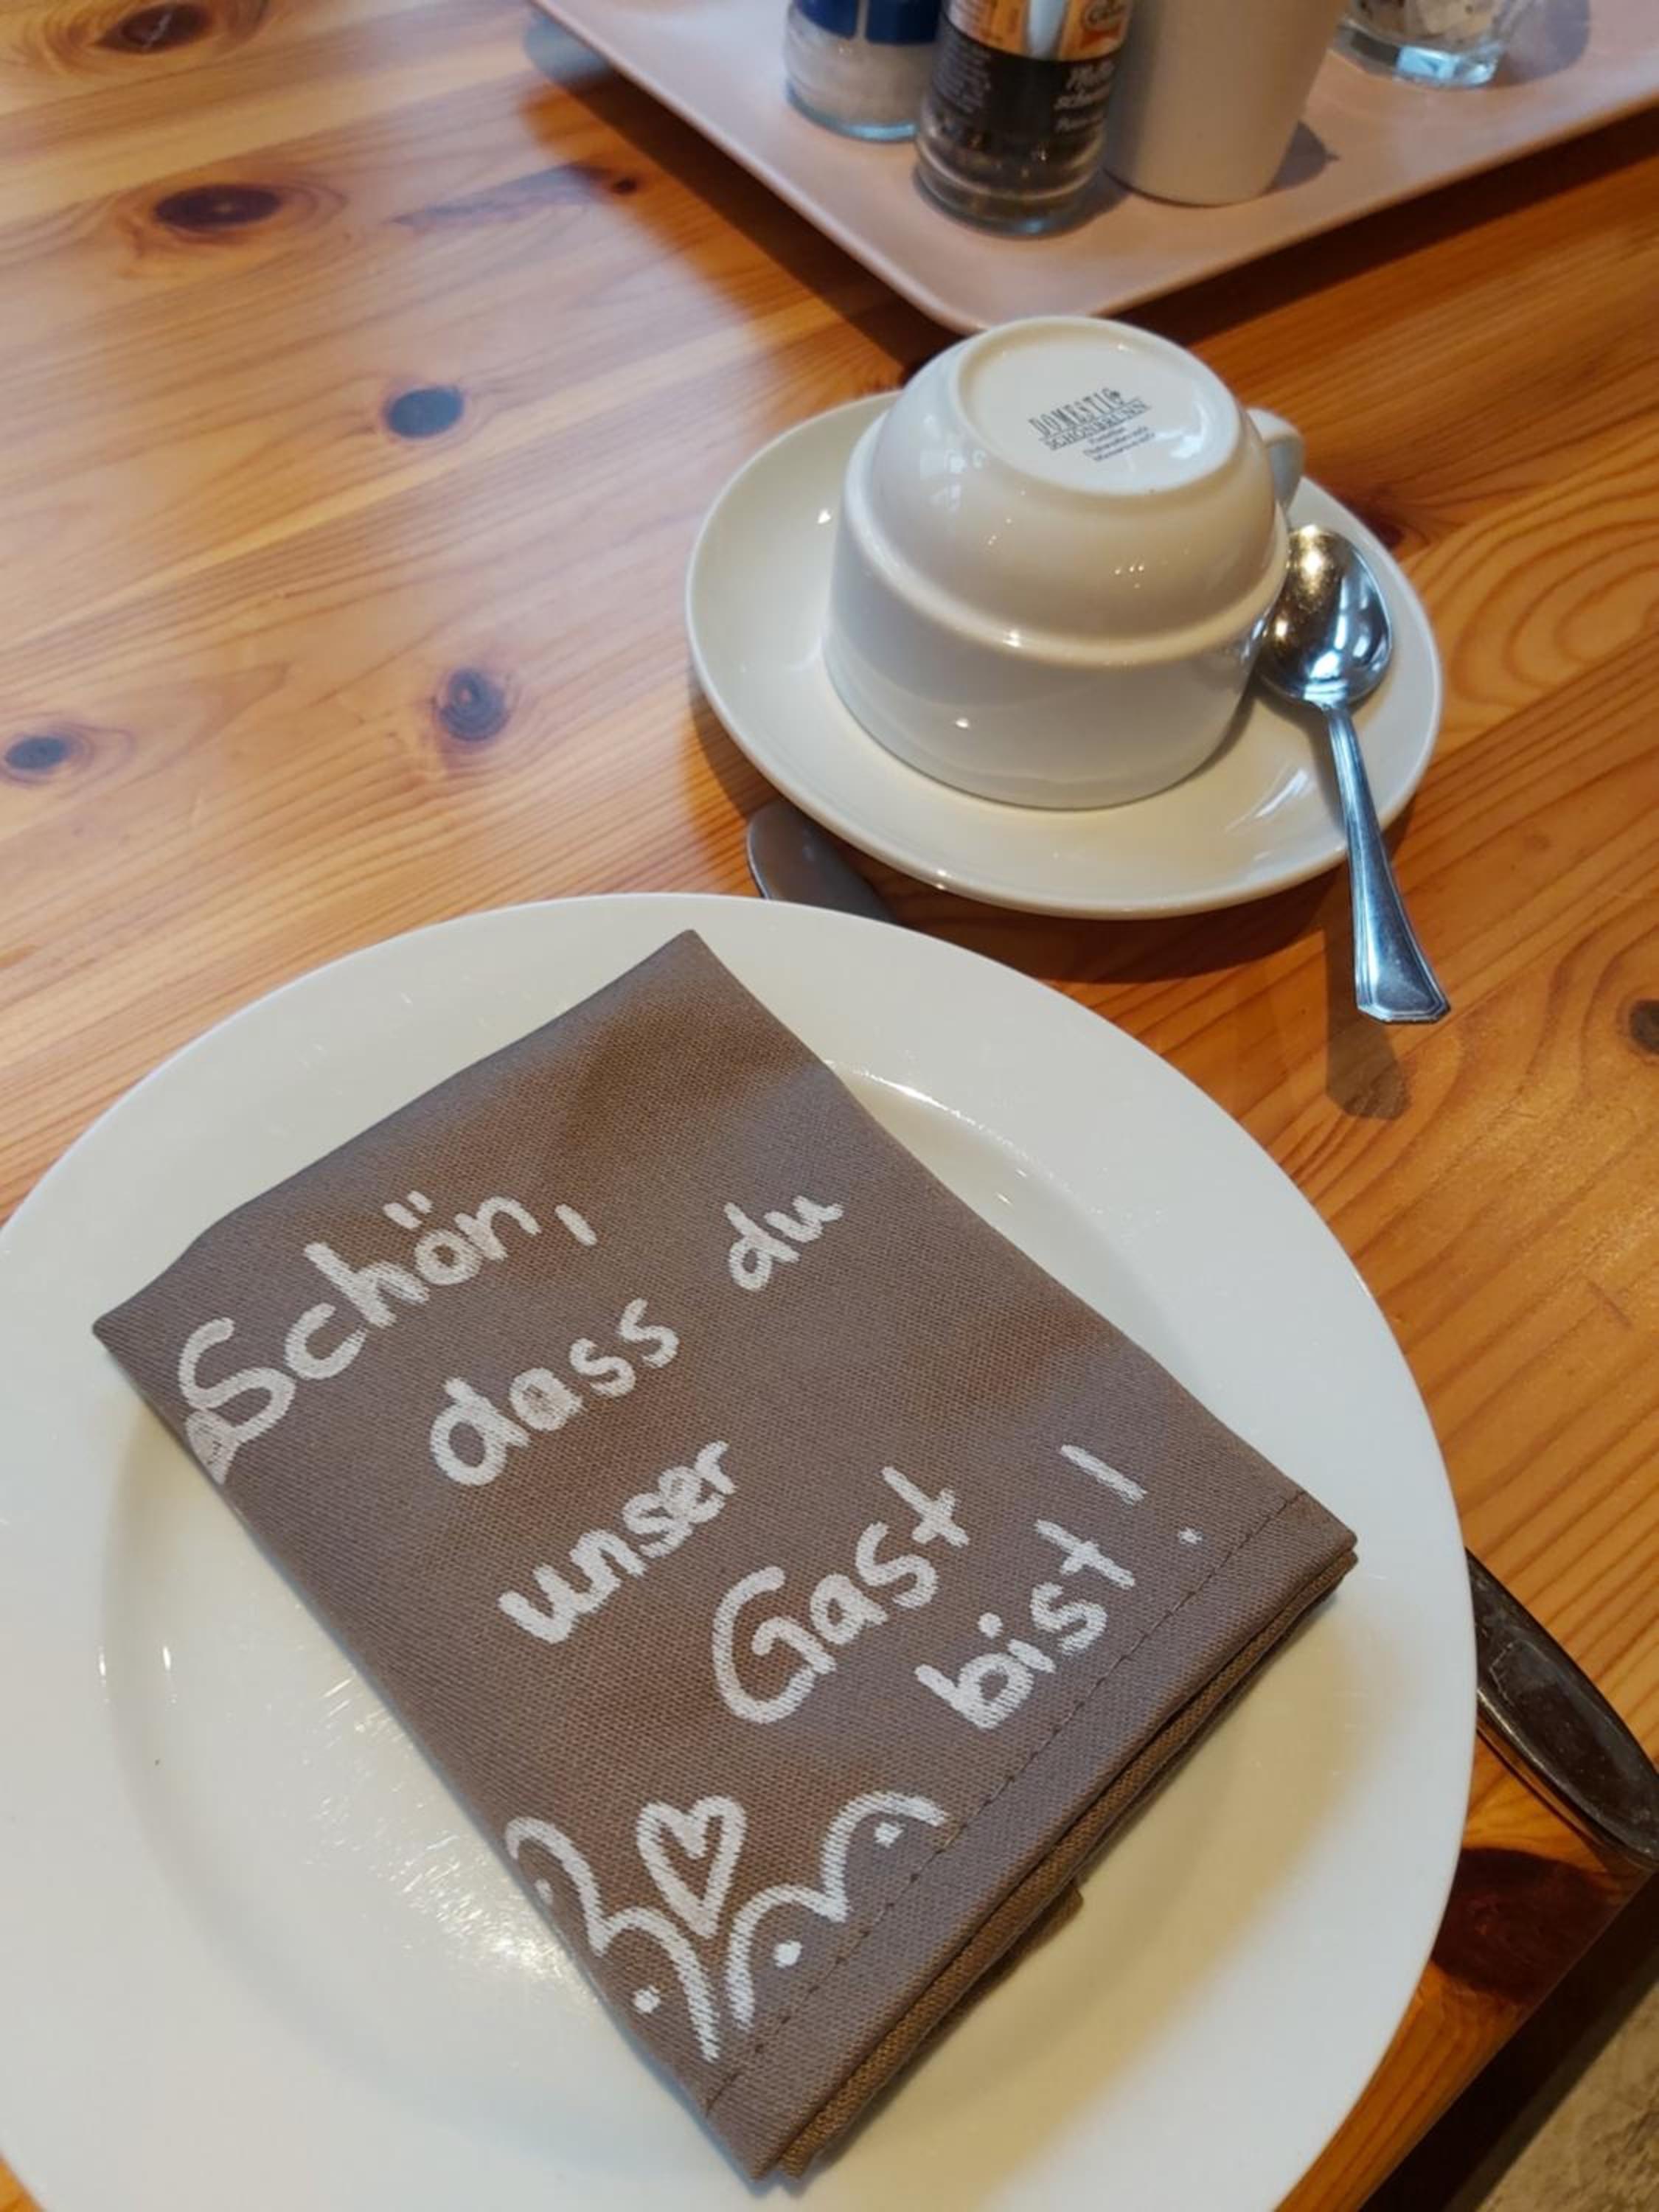 Schön,
dass du
unser
Gast
bist!
DOMESTIC
SCHÖNBRUNN